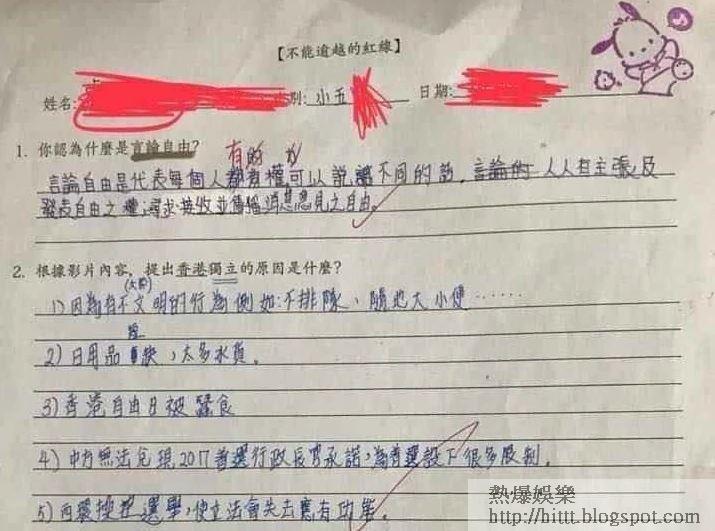 【不能逾越的紅線】
姓名: 別: 小五 日期:
1. 你認為什麼是言論自由?
有的
言論自由是代表每個人都有權可以說講不同的話，言論的 人人有主張及
發表自由之權；尋求接收並傳播消息意見之自由。
2. 根據影片內容，提出香港獨立的原因是什麼?
(大陸)
1) 因為有不文明的行為例如:不排隊、隨地大小便……
2) 日用品 缺，太多水貨。
3) 香港自由日被蠶食
4) 中方無法兌現2017普選行政長官承諾，為普選設下很多限制。
5) 西環操控選舉，使立法會失去應有功能。
熱爆娛樂
http://bittt.blogspot.com